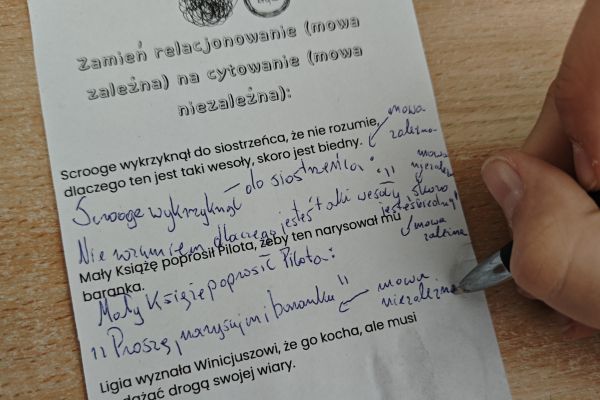 Zamień relacjonowanie (mowa
zależna) na cytowanie (mowa
niezależna):
Scrooge wykrzyknął do siostrzeńca, że nie rozumie,
dlaczego ten jest taki wesoły, skoro jest biedny.
mowa
zależna
Scrooge wykrzyknął do siostrzeńca:
mowa
niezależna
Nie rozumiem dlaczego jesteś taki wesoły, skoro
jesteś biedny!
Mały Książę poprosił Pilota, żeby ten narysował mu
baranka.
mowa
zależna
Mały Książę poprosił Pilota:
„Proszę, narysuj mi baranka"
mowa
niezależna
Ligia wyznała Winicjuszowi, że go kocha, ale musi
podążać drogą swojej wiary.